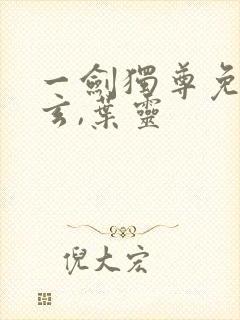 一劍獨尊免
玄,葉靈
倪大宏